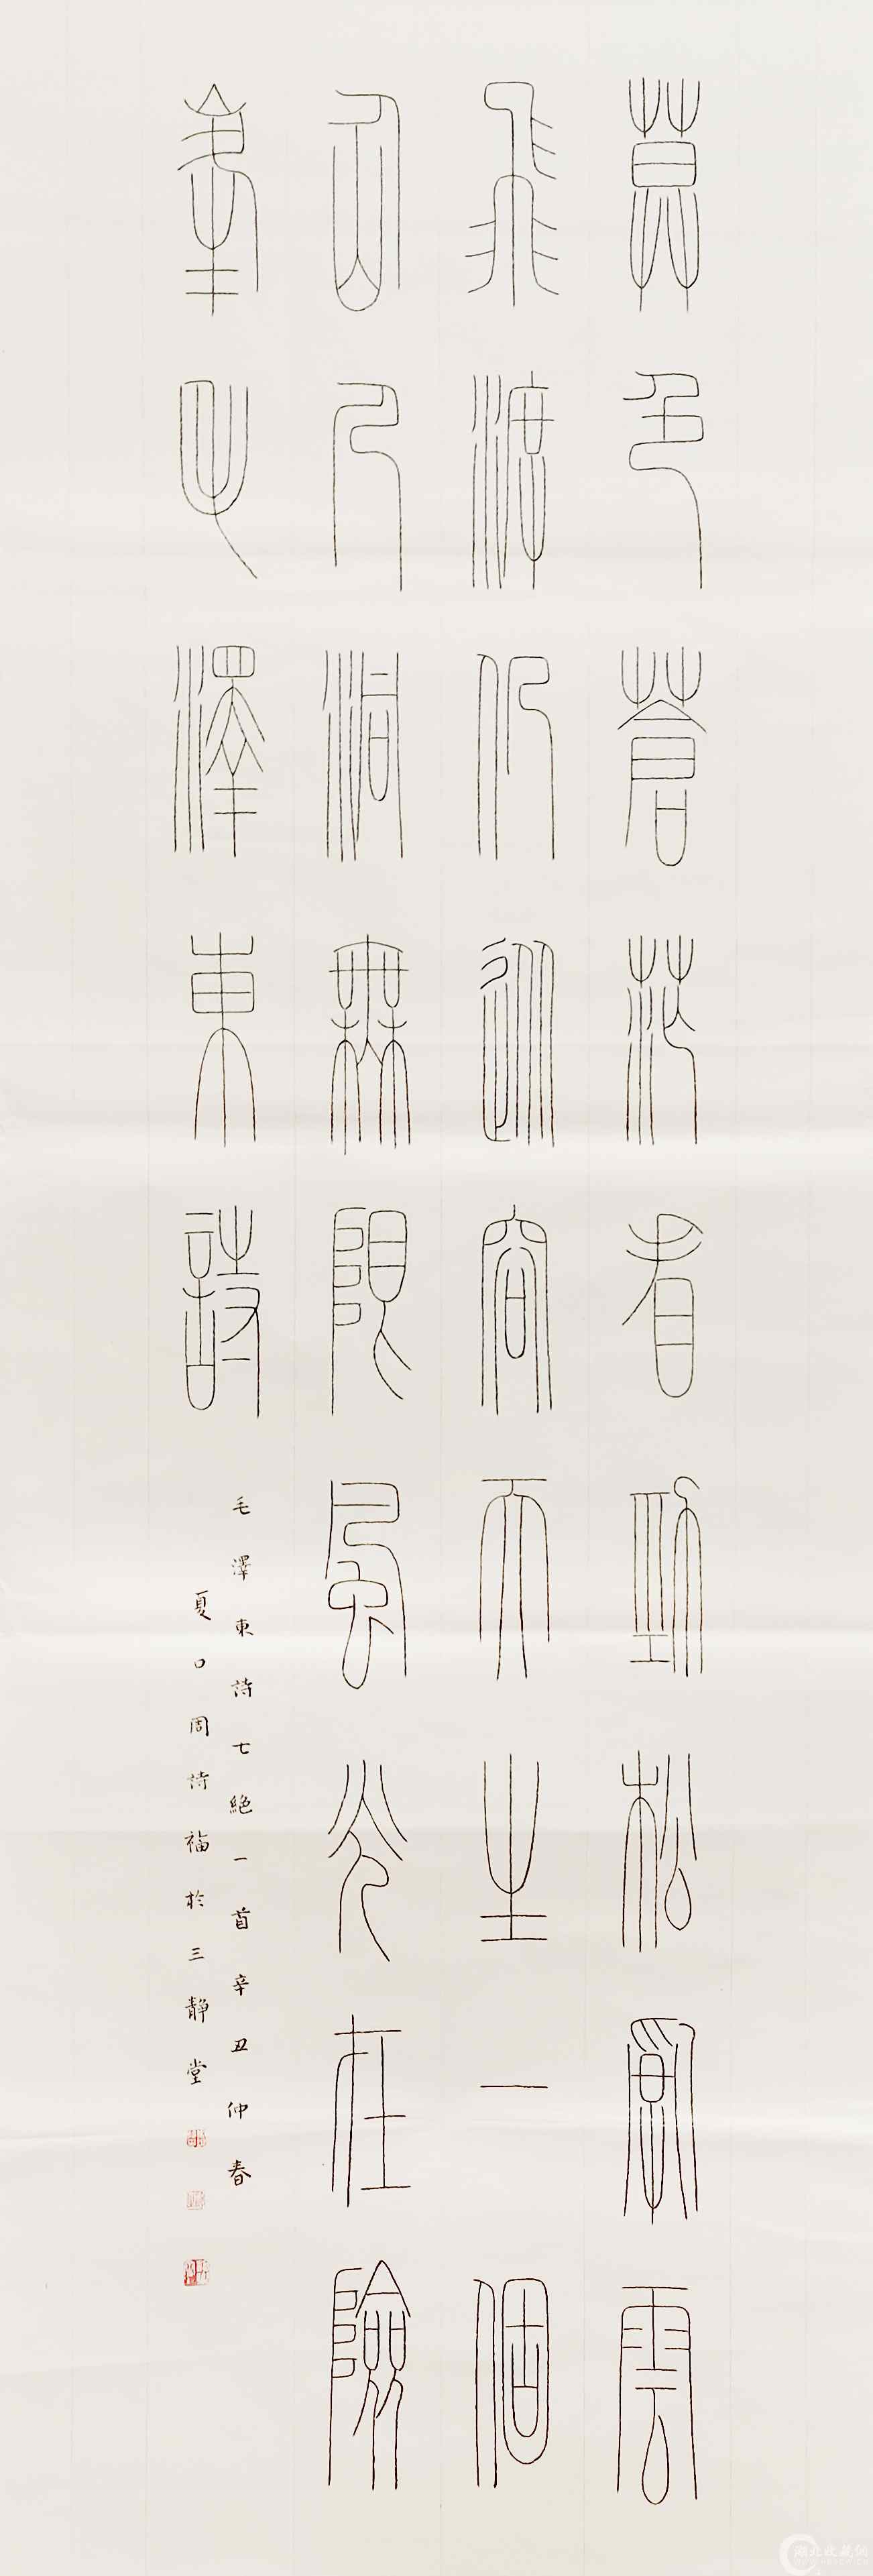 莫色蒼茫看勁松亂雲
飛渡仍從容天生一個
仚人洞無限風光在險
峯毛澤東詩
毛澤東詩七絕一首辛丑仲春
夏口周詩福於三靜堂
湖北收藏網